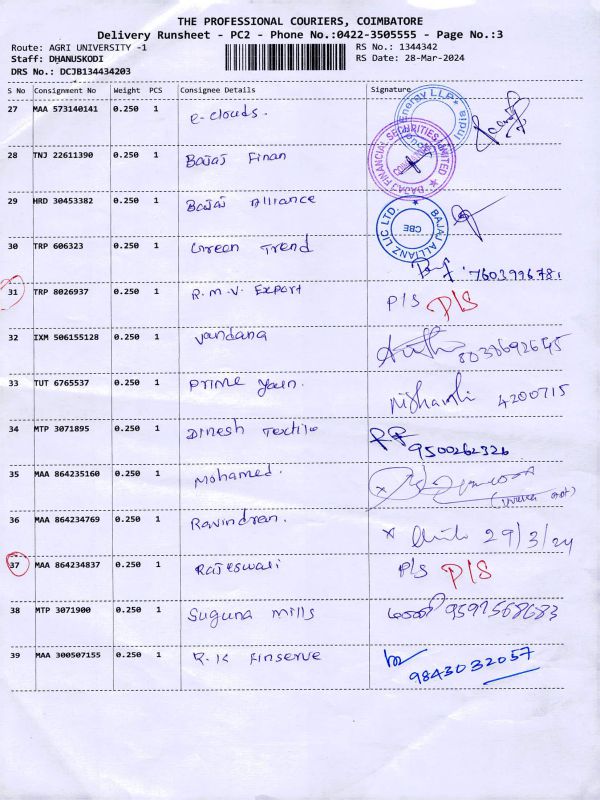 THE PROFESSIONAL COURIERS, COIMBATORE
Delivery Runsheet - PC2 - Phone No.:0422-3505555 - Page No.:3
Route: AGRI UNIVERSITY -1 RS No.: 1344342
Staff: DHANUSKODI RS Date: 28-Mar-2024
DRS No.: DCJB134434203
S No Consignment No Weight PCS Consignee Details Signature
27 MAA 573140141 0.250 1 e-clouds. Energy LLP
28 TNJ 22611390 0.250 1 Bajaj Finan BAJAJ FINANCIAL SECURITIES LIMITED
29 HRD 30453382 0.250 1 Bajaj Alliance BAJAJ ALLIANZ LIC LTD. CBE
30 TRP 606323 0.250 1 Green Trend 7603996781
31 TRP 8026937 0.250 1 R.M.V. Export P/S P/S
32 IXM 506155128 0.250 1 Vandana
33 TUT 6765537 0.250 1 Prime Yarn. Nishanthi 4200715
34 MTP 3071895 0.250 1 Dinesh Textile 9500262326
35 MAA 864235160 0.250 1 Mohamed.
36 MAA 864234769 0.250 1 Ravindran. x 29/3/24
37 MAA 864234837 0.250 1 Rajeswali P/S P/S
38 MTP 3071900 0.250 1 Suguna Mills 9597568683
39 MAA 300507155 0.250 1 R.K Finserve 9843032057